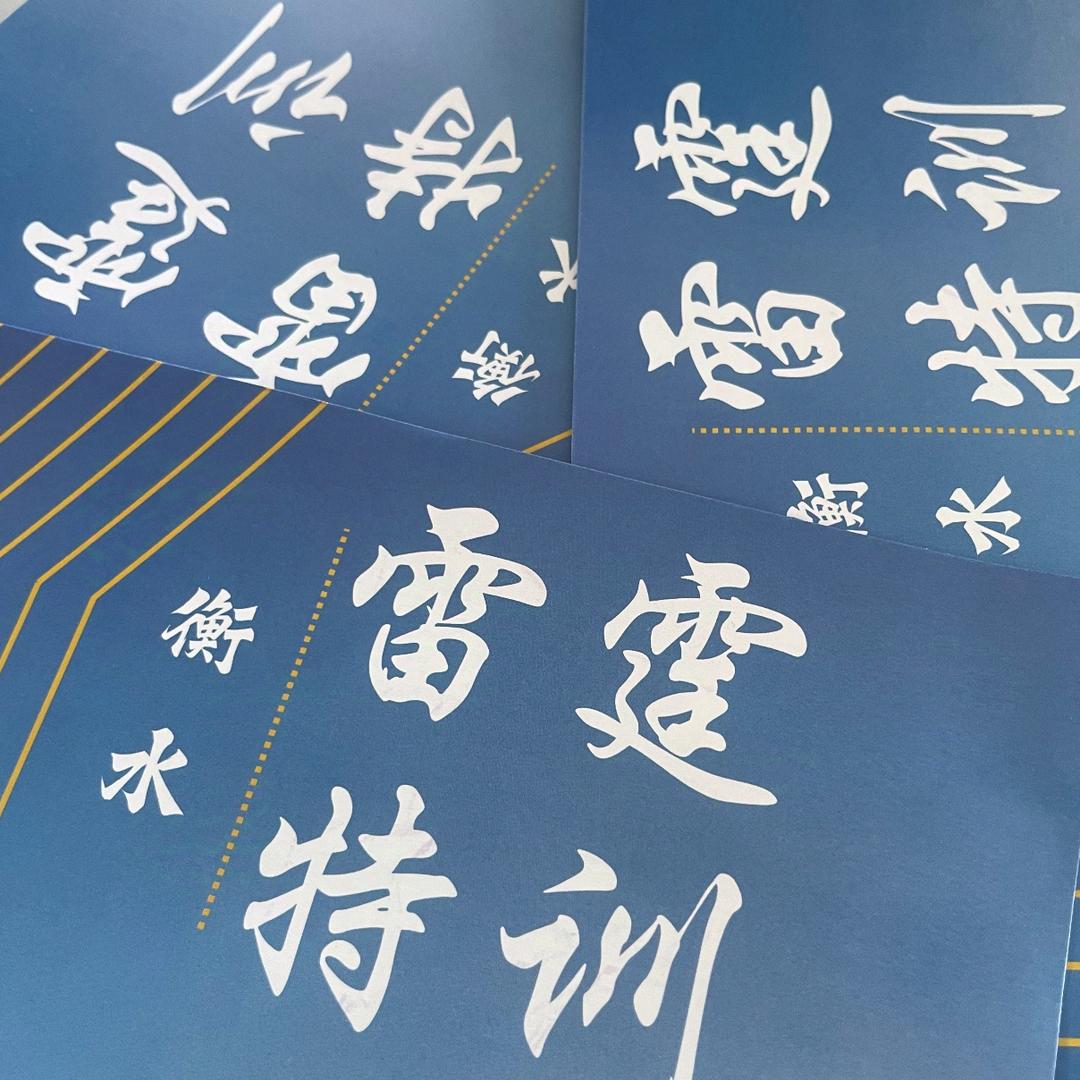 雷霆
特训
衡水
雷霆
特训
衡水
衡水
雷霆
特训